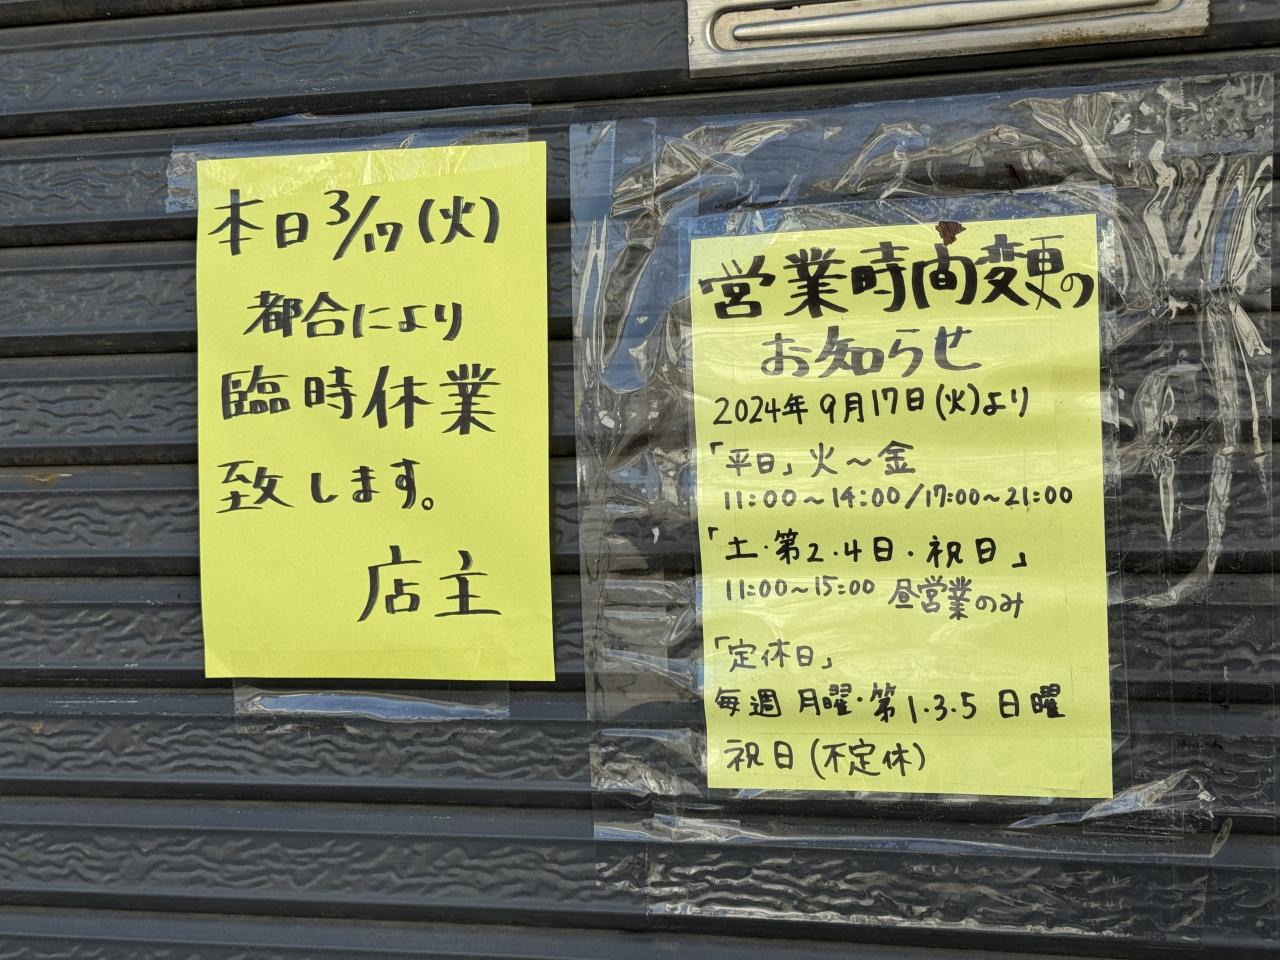 本日3/17(火)
都合により
臨時休業
致します。
店主
営業時間変更の
お知らせ
2024年9月17日(火)より
「平日」火～金
11:00～14:00/17:00～21:00
「土・第2・4日・祝日」
11:00～15:00 昼営業のみ
「定休日」
毎週月曜・第1・3・5日曜
祝日(不定休)